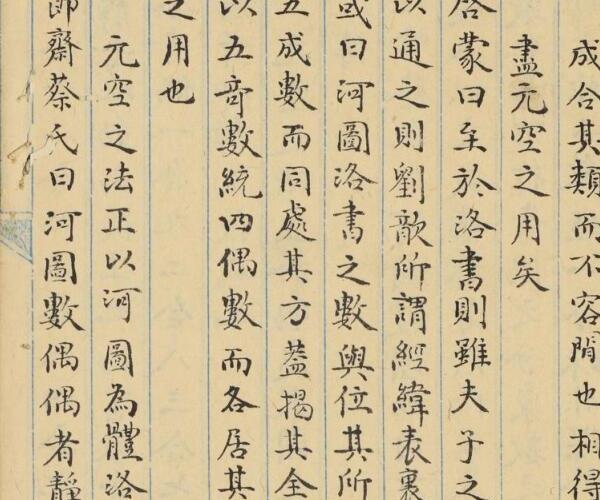 成合其類而不容間也相得
盡元空之用矣
啓蒙曰至於洛書則雖夫子之
以通之則劉歆所謂經緯表裏
或曰河圖洛書之數與位其所
五成數而同處其方蓋揭其全
以五奇數統四偶數而各居其
之用也
元空之法正以河圖為體洛
節齋蔡氏曰河圖數偶偶者靜